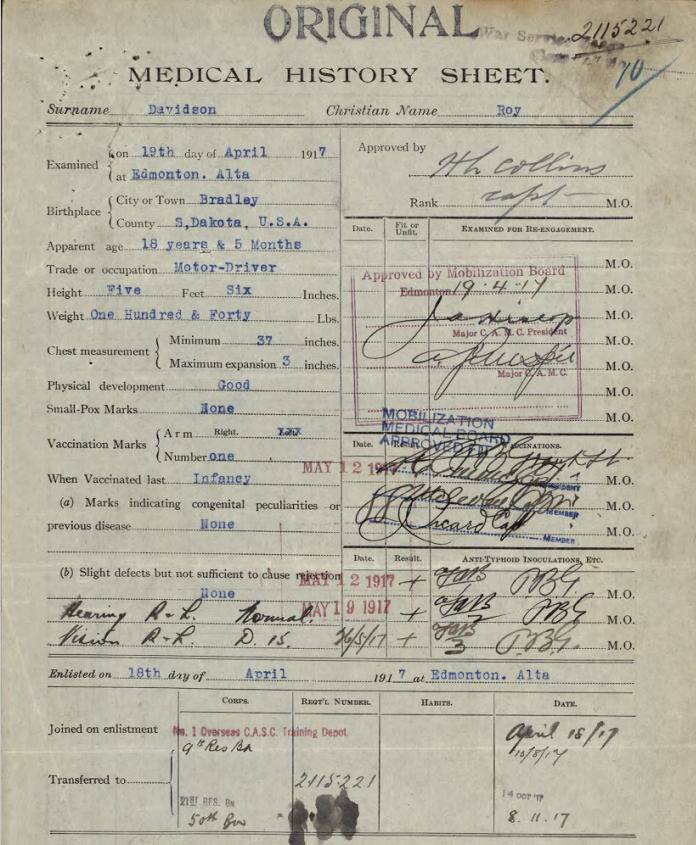 ORIGINAL
War Service
2115221
10
MEDICAL HISTORY SHEET.
Surname Davidson Christian Name Roy
Examined on 19th day of April 1917
at Edmonton. Alta
Birthplace City or Town Bradley
County S,Dakota, U.S.A.
Apparent age 18 years & 5 Months
Trade or occupation Motor-Driver
Height Five Feet Six Inches.
Weight One Hundred & Forty Lbs.
Chest measurement Minimum 37 inches.
Maximum expansion 3 inches.
Physical development Good
Small-Pox Marks None
Vaccination Marks Arm Right. xxx
Number one
When Vaccinated last Infancy
(a) Marks indicating congenital peculiarities or
previous disease None
(b) Slight defects but not sufficient to cause rejection
None
Hearing R - L. Normal.
Vision R - L. D. 15.
Approved by
H L Collins
Rank Capt M.O.
Date. Fit or Unfit. EXAMINED FOR RE-ENGAGEMENT.
M.O.
Approved by Mobilization Board
Edmonton 19-4-17 M.O.
M.O.
Major C.A.M.C. President
M.O.
Major C.A.M.C.
M.O.
M.O.
MOBILIZATION
MEDICAL BOARD
APPROVED
Date. VACCINATIONS.
MAY 12 1917
M.O.
PRESIDENT
M.O.
MEMBER
M.O.
MEMBER
Date. Result. ANTI-TYPHOID INOCULATIONS, ETC.
MAY 12 1917 + M.O.
MAY 19 1917 + M.O.
26/5/17 + 3 M.O.
Enlisted on 18th day of April 1917 at Edmonton. Alta
CORPS. REGT'L NUMBER. HABITS. DATE.
Joined on enlistment No. 1 Overseas C.A.S.C. Training Depot. April 18/17
9th Res Bn 10/8/17
Transferred to 2115221
21ST RES. BN 14 OCT 17
50th Bn 8.11.17